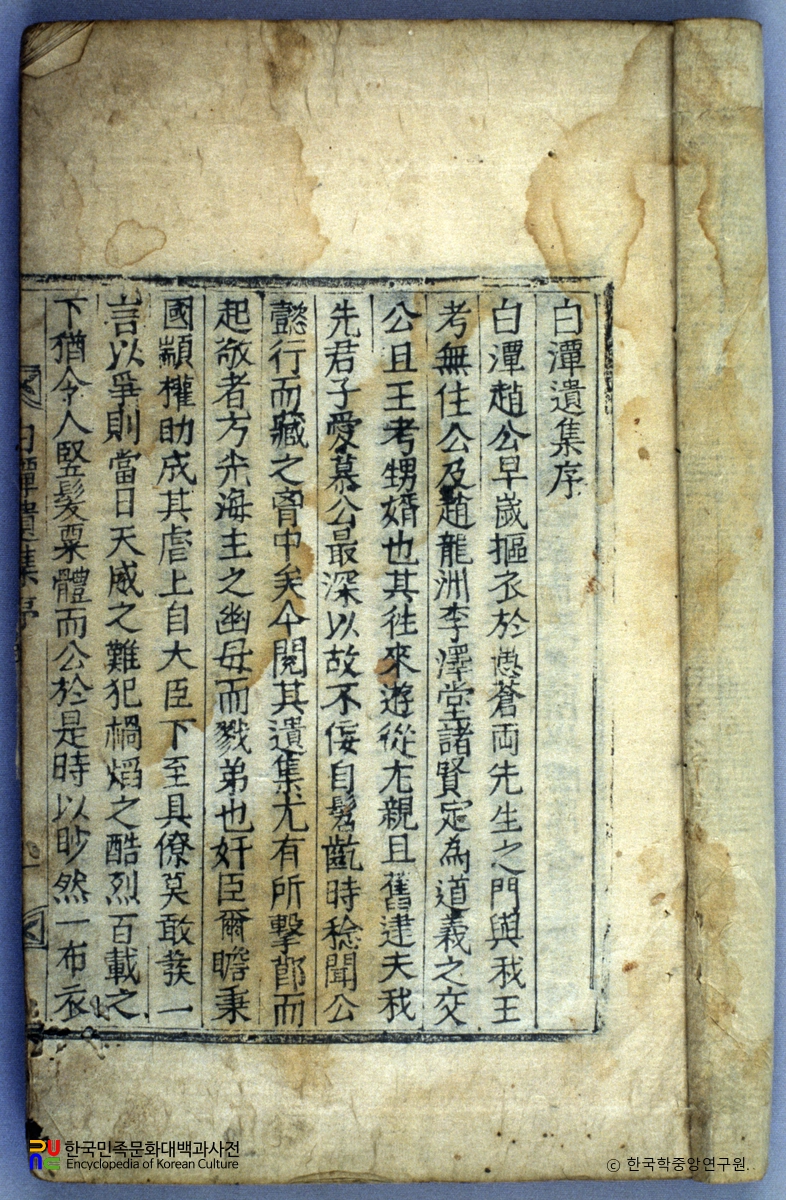 白潭遺集序
白潭趙公早歲摳衣於愚蒼両先生之門與我王
考無住公及趙龍洲李澤堂諸賢定為道義之交
公且王考甥婿也其往來遊從尤親且舊逮夫我
先君子愛慕公最深以故不佞自髫齔時稔聞公
懿行而藏之膏中矣今閱其遺集尤有所擊節而
起敬者方光海主之幽母而戮弟也奸臣爾瞻秉
國顓權助成其虐上自大臣下至具僚莫敢發一
言以爭則當日天威之難犯禍熖之酷烈百載之
下猶令人竪髮粟體而公於是時以眇然一布衣
白潭遺集序
한국민족문화대백과사전
Encyclopedia of Korean Culture
© 한국학중앙연구원